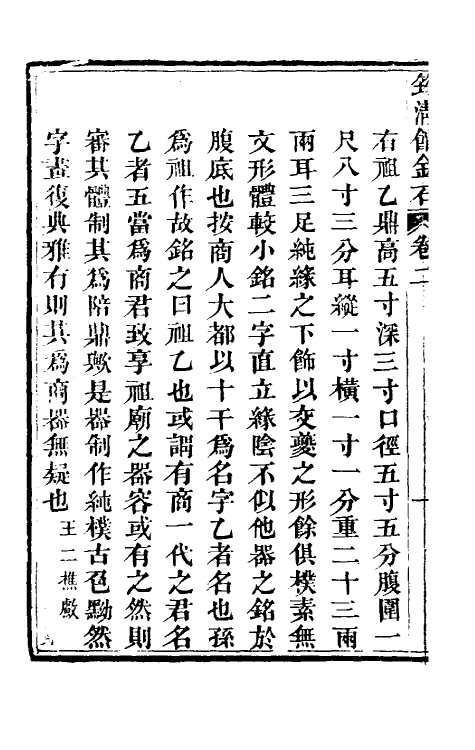 筠清館金石 卷二
右祖乙鼎高五寸深三寸口徑五寸五分腹圍一
尺八寸三分耳縱一寸橫一寸一分重二十三兩
兩耳三足純緣之下飾以交夔之形餘俱樸素無
文形體較小銘二字直立緣陰不似他器之銘於
腹底也按商人大都以十干為名字乙者名也孫
為祖作故銘之曰祖乙也或謂有商一代之君名
乙者五當為商君致享祖廟之器容或有之然則
審其體制其為陪鼎歟是器制作純樸古色黝然
字畫復典雅有則其為商器無疑也 王二樵嚴